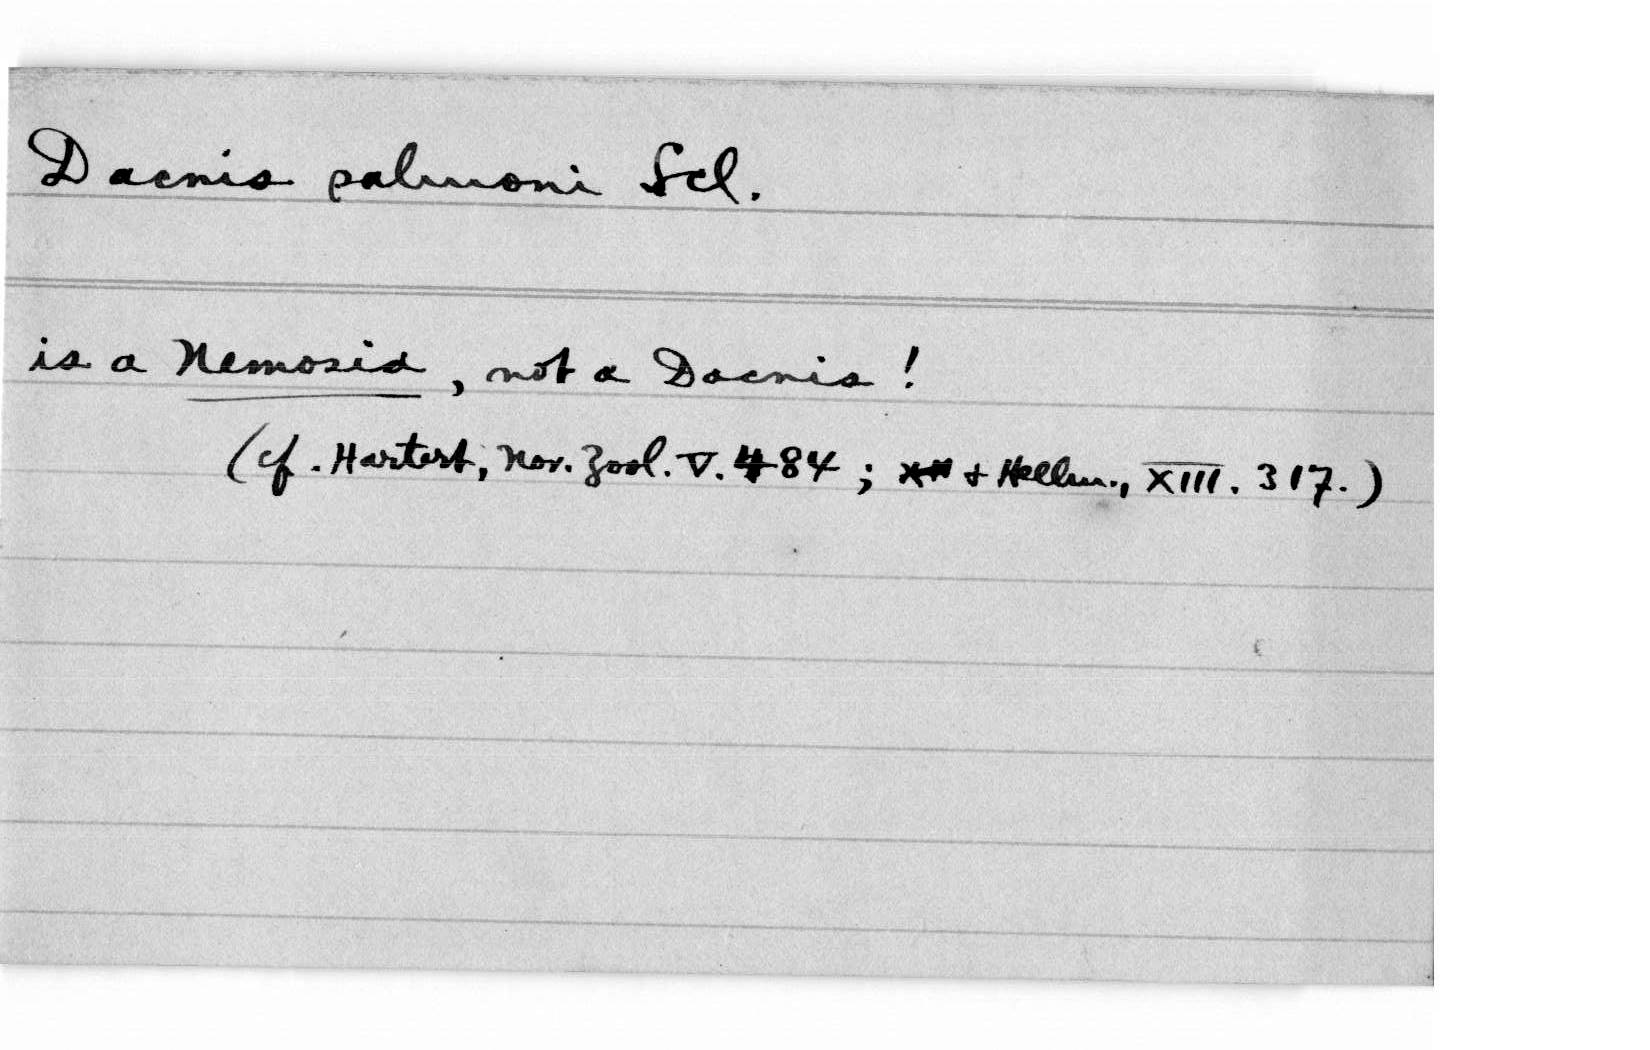 Dacnis salmoni Scl.
is a Nemosia, not a Dacnis!
(cf. Hartert, Nov. Zool. V. 484; + Hellm., XIII. 317.)